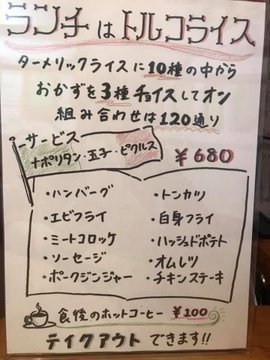 ランチはトルコライス
ターメリックライスに10種の中から
おかずを3種チョイスしてオン
組み合わせは120通り
サービス
ナポリタン・玉子・ピクルス
¥680
・ハンバーグ
・エビフライ
・ミートコロッケ
・ソーセージ
・ポークジンジャー
・トンカツ
・白身フライ
・ハッシュドポテト
・オムレツ
・チキンステーキ
食後のホットコーヒー ¥100
テイクアウトできます!!